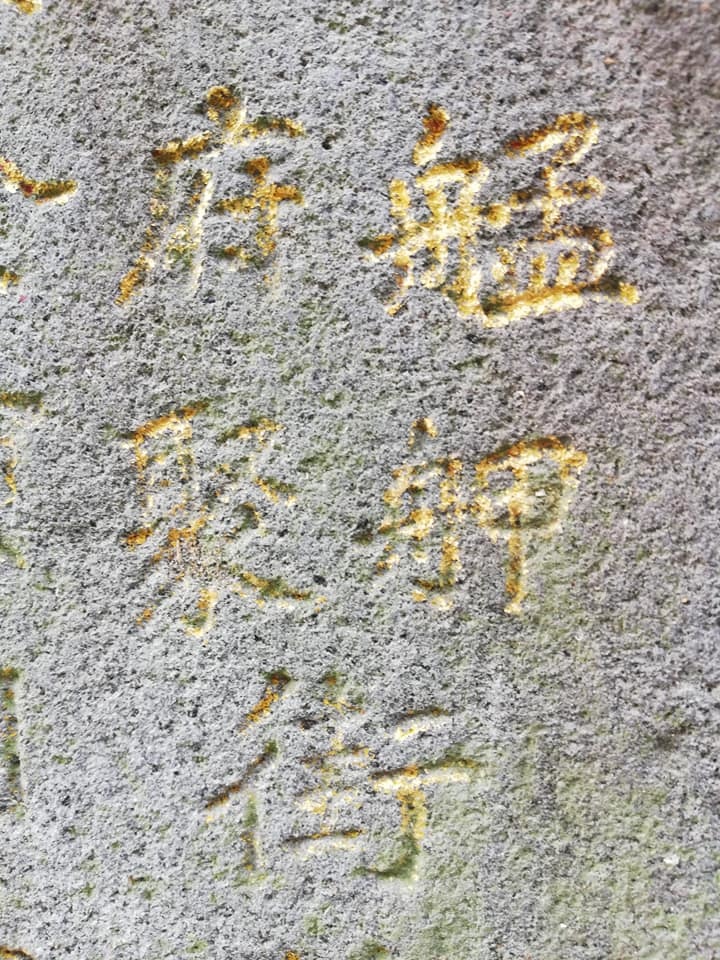 艋舺
府聚
街